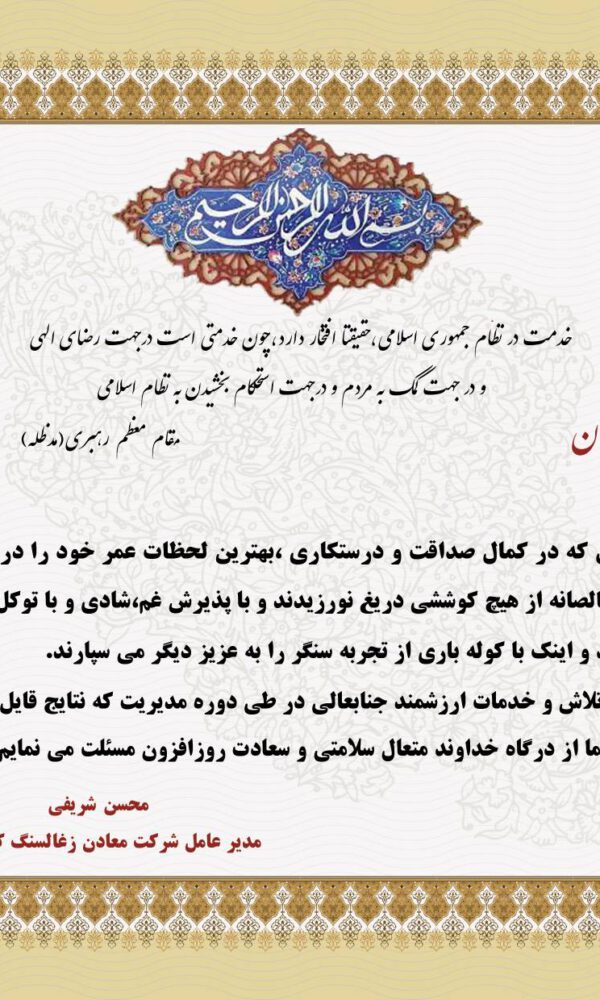 بسم الله الرحمن الرحیم
خدمت در نظام جمهوری اسلامی،حقیقتا افتخار دارد،چون خدمتی است درجهت رضای الهی
و در جهت کمک به مردم و درجهت استحکام بخشیدن به نظام اسلامی
مقام معظم رهبری(مدظله)
ان
که در کمال صداقت و درستکاری ،بهترین لحظات عمر خود را در
الصانه از هیچ کوششی دریغ نورزیدند و با پذیرش غم،شادی و با توکل
و اینک با کوله باری از تجربه سنگر را به عزیز دیگر می سپارند.
تلاش و خدمات ارزشمند جنابعالی در طی دوره مدیریت که نتایج قایل
ما از درگاه خداوند متعال سلامتی و سعادت روزافزون مسئلت می نمایم
محسن شریفی
مدیر عامل شرکت معادن زغالسنگ ک